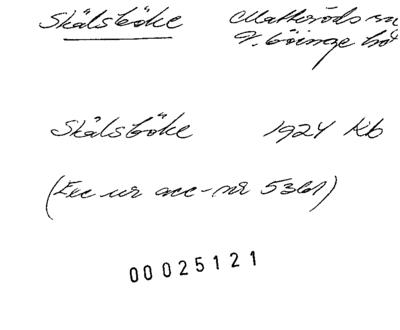 Skälsböke Matteröds sn
V. Göinge hd
Skälsböke 1924 Kb
(Exc ur acc-nr 5361)
00025121